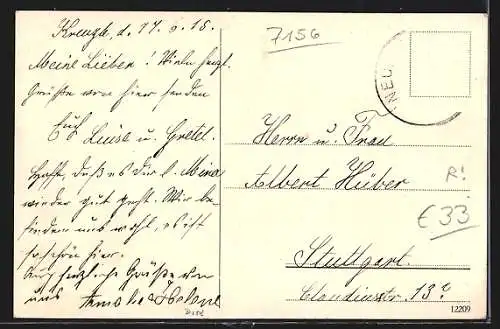 d. 17. 9. 18.
Meine Lieben! Viele herzl.
Grüße von hier senden
Euch
Luise u. Gretel.
Hofft, daß es der l. Mina
wieder gut geht. Wir be-
finden uns wohl, es ist
so schön hier.
Grüße von
uns
7156
NEU
Herrn u. Frau
Albert Huber
Stuttgart.
Claudiusstr. 13
€ 33
12209